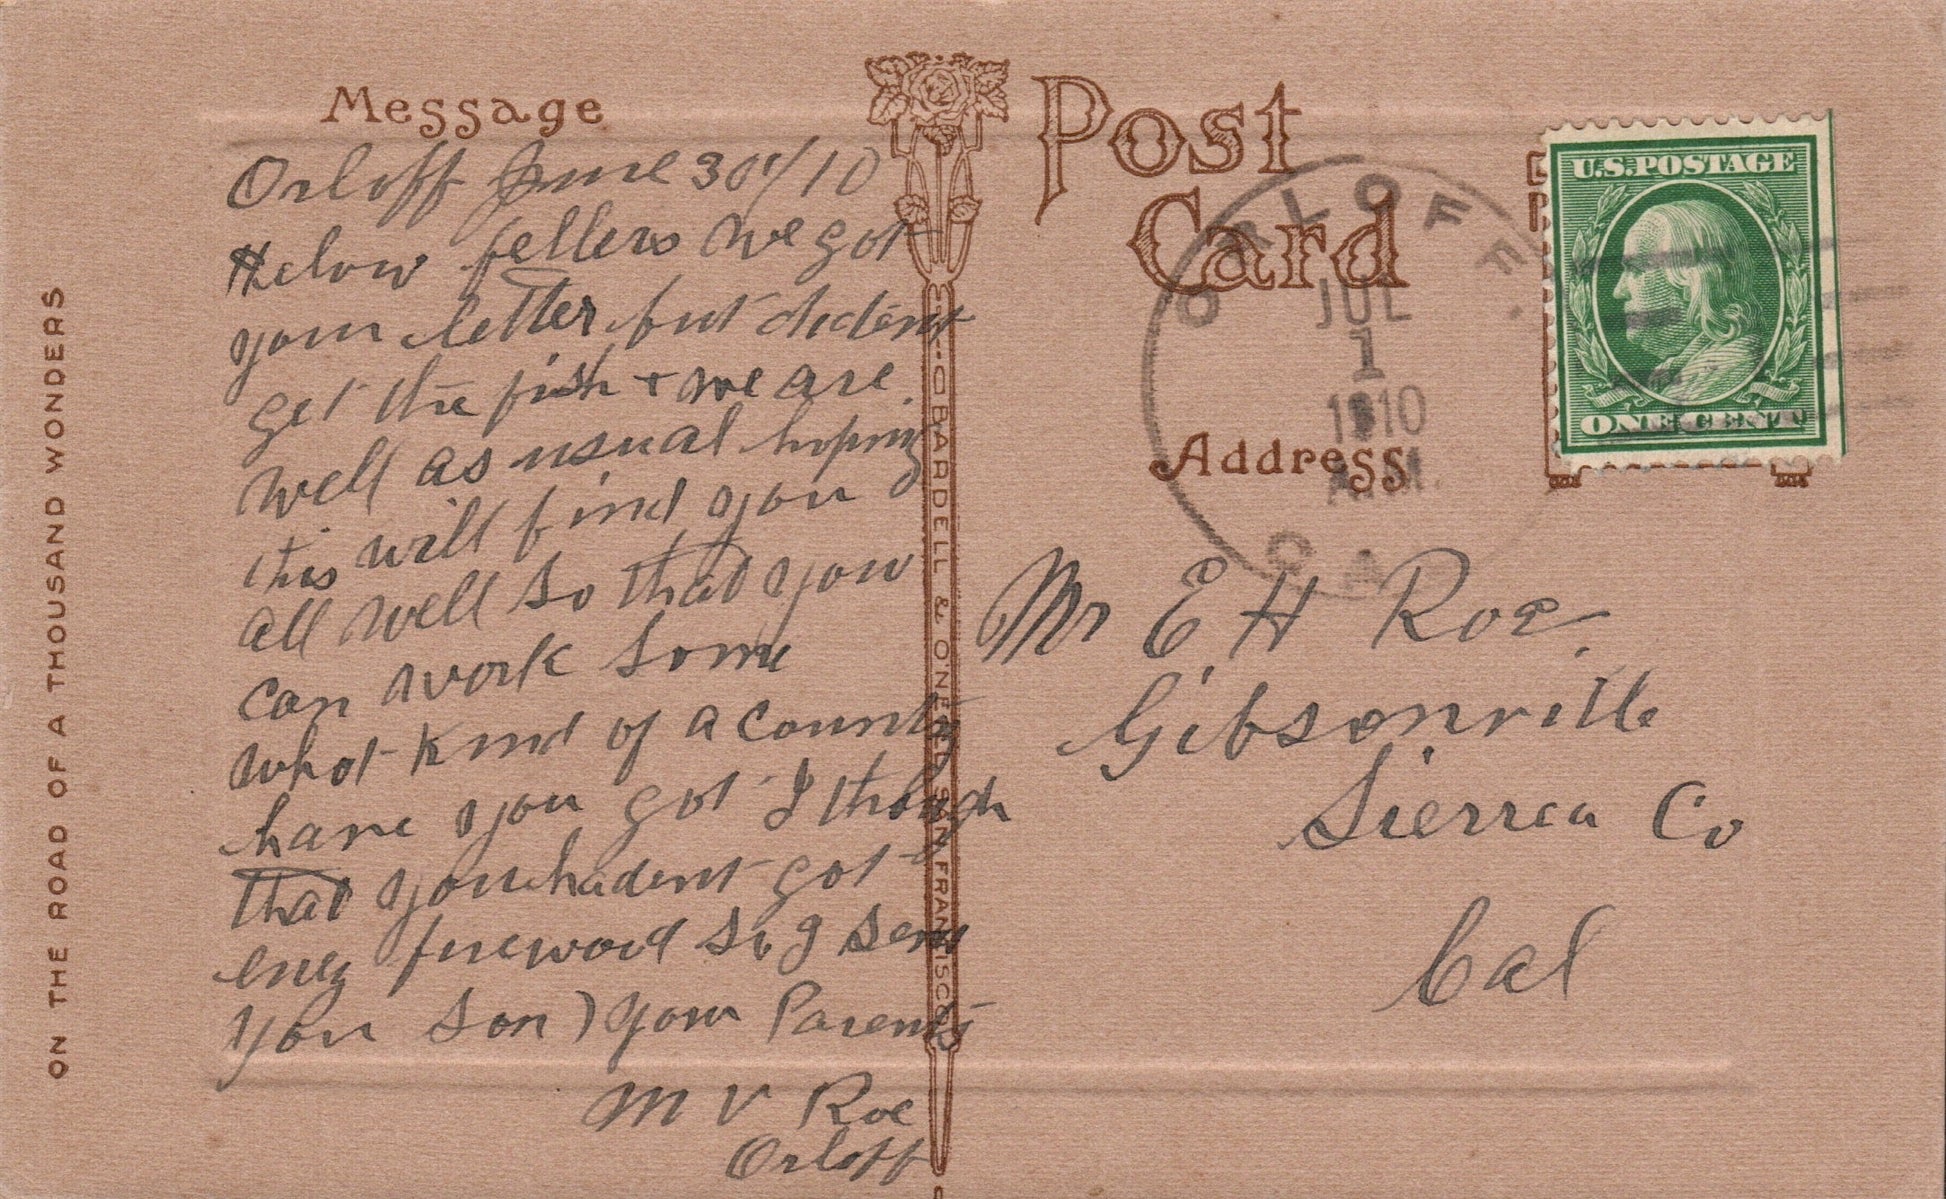 Message
Orloff June 30th/10
Helow fellers we got
your letter but dident
get the fish + we are
well as usual hoping
this will find you
all well so that you
can work some
what kind of a County
have you got I though
that you hadent got
eney firewood so I
you son) your Parents
M V Roe
Orloff
ON THE ROAD OF A THOUSAND WONDERS
CARDELL & ONE SAN FRANCISCO
Post
Card
Address
ORLOFF
JUL
1
1910
A.M.
CAL
U.S. POSTAGE
ONE CENT
Mr E H Roe
Gibsonville
Sierra Co
Cal